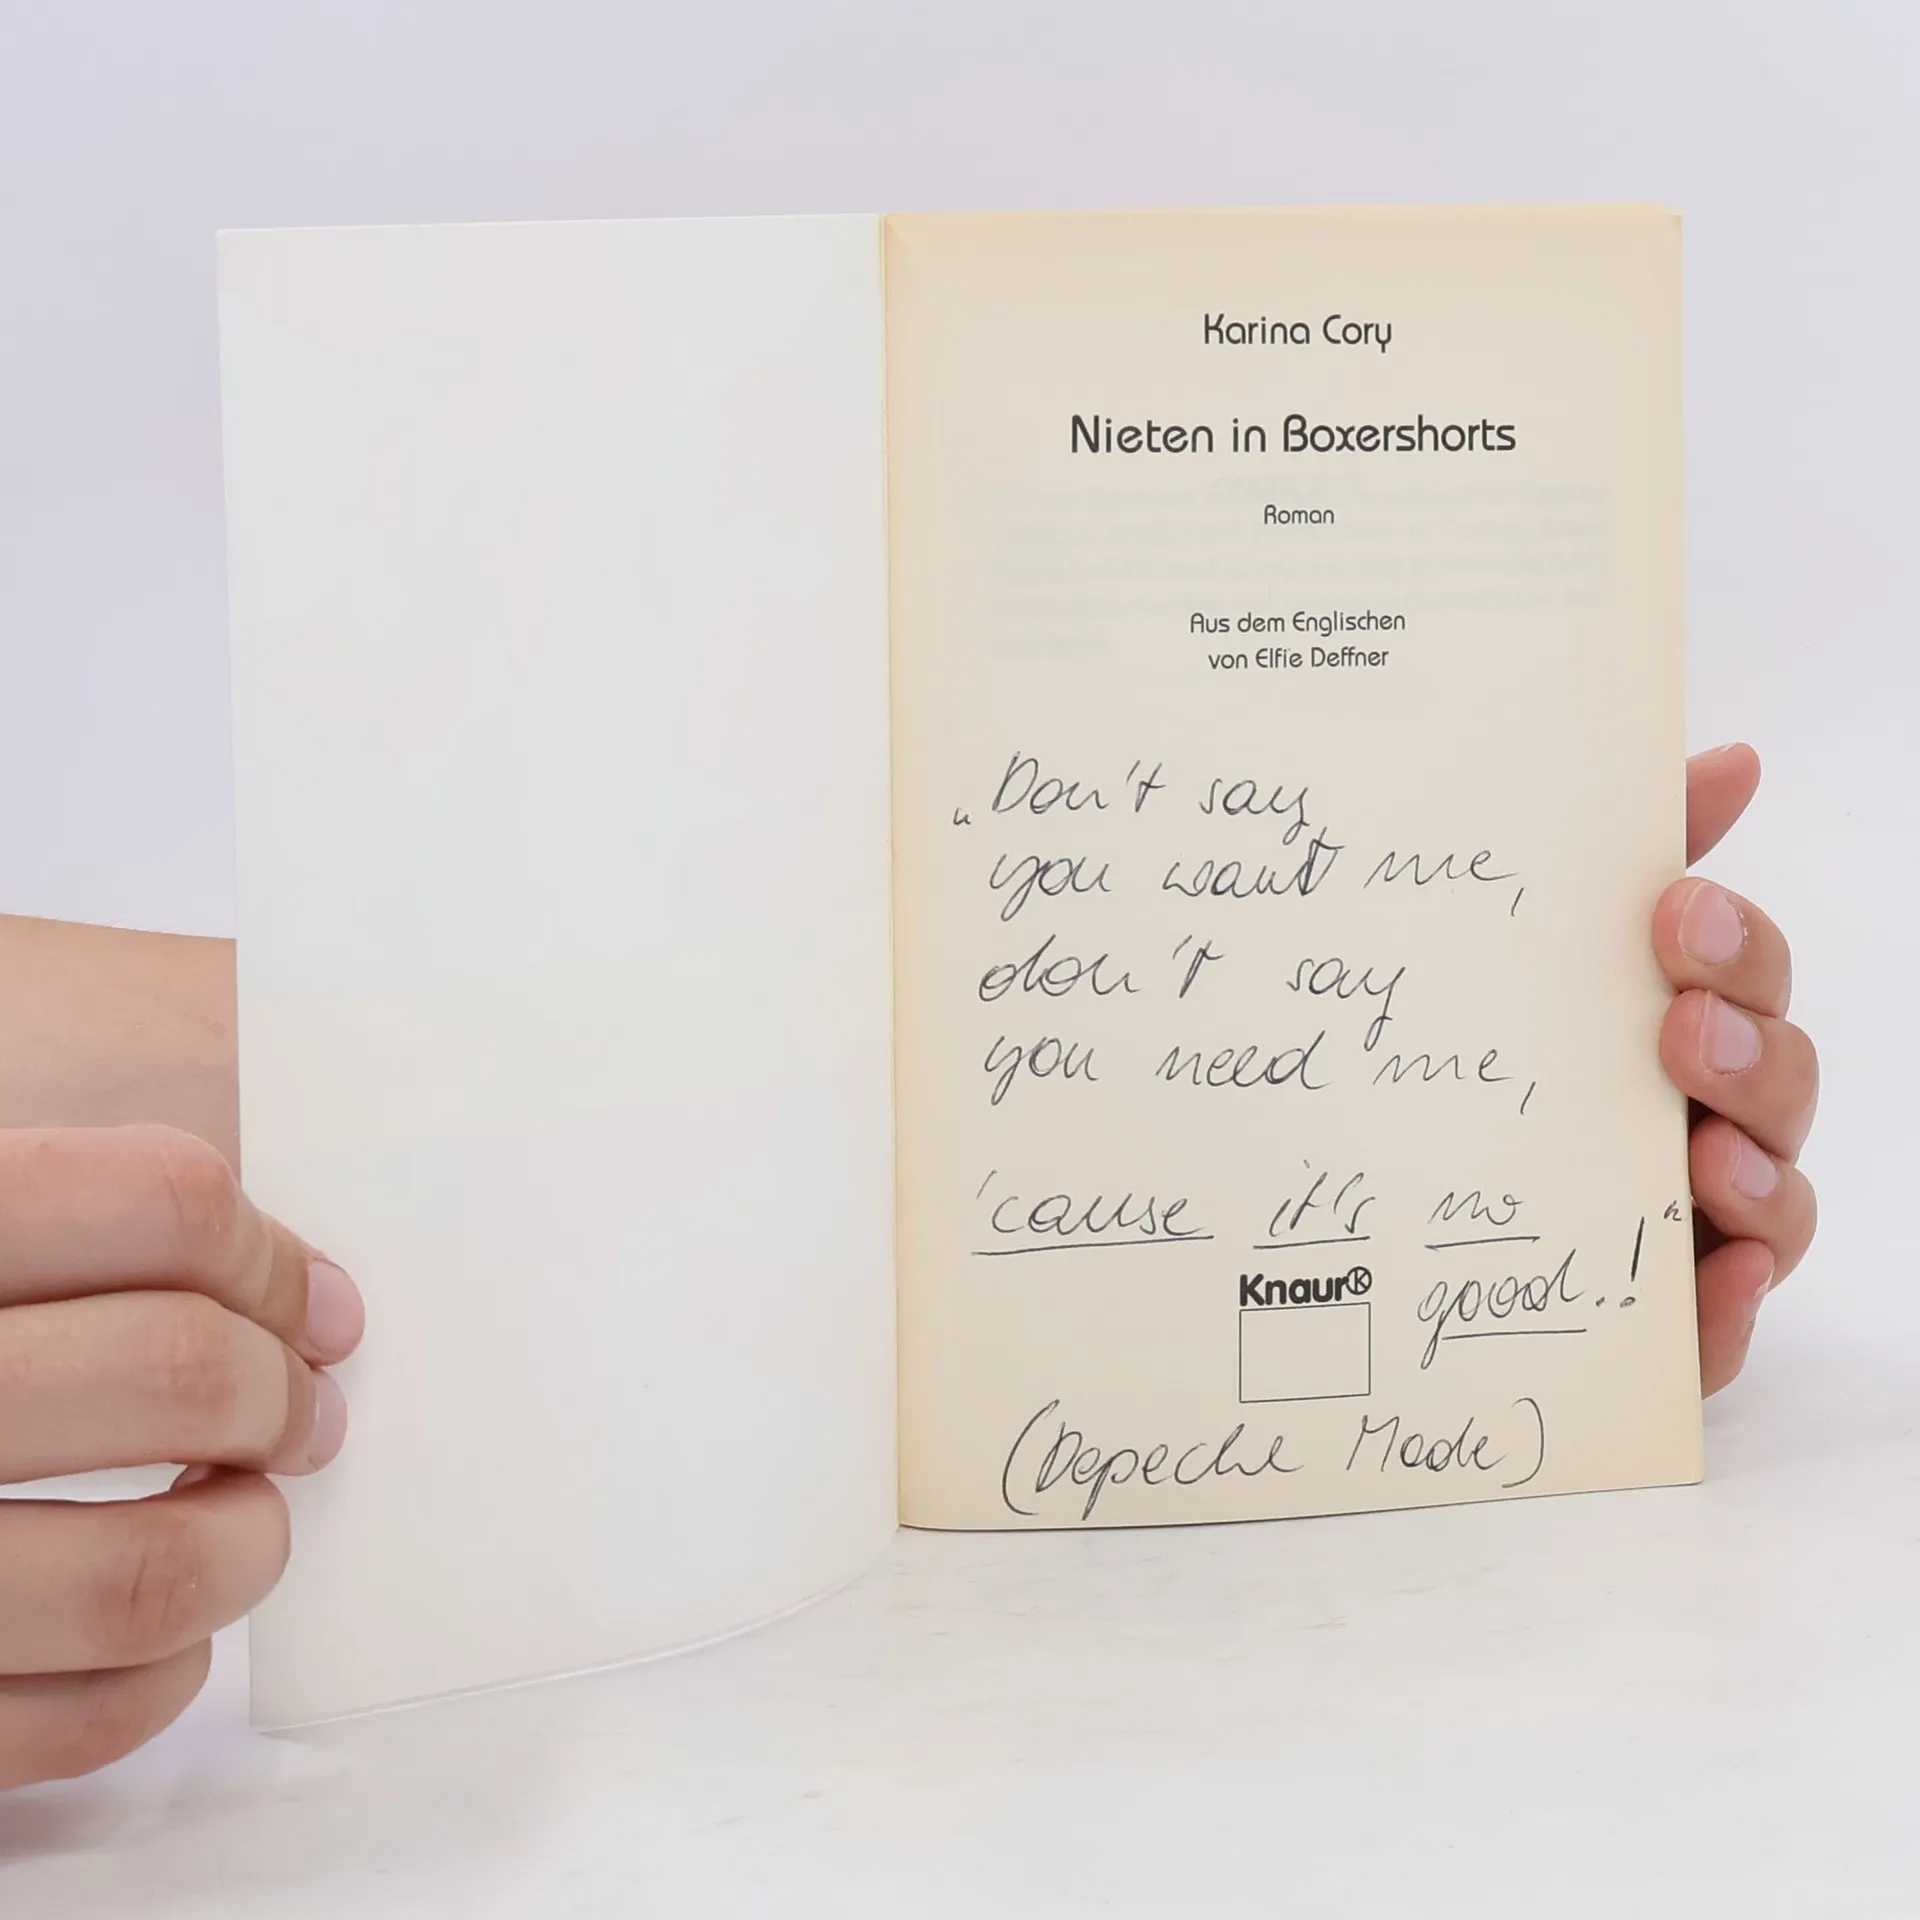 Karina Cory
Nieten in Boxershorts
Roman
Aus dem Englischen
von Elfie Deffner
„Don't say
you want me,
don't say
you need me,
'cause it's no
good.!"
Knaur®
(Depeche Mode)